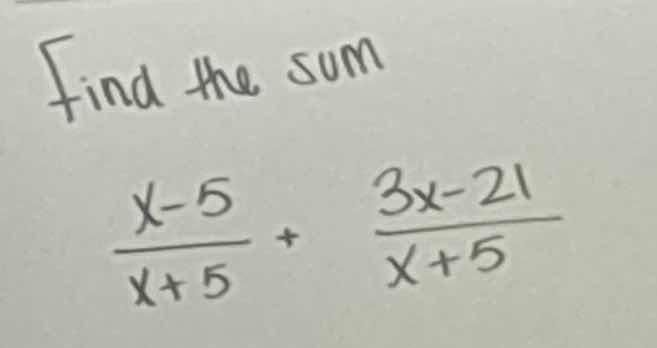 Find the sum
x-5/x+5 + 3x-21/x+5